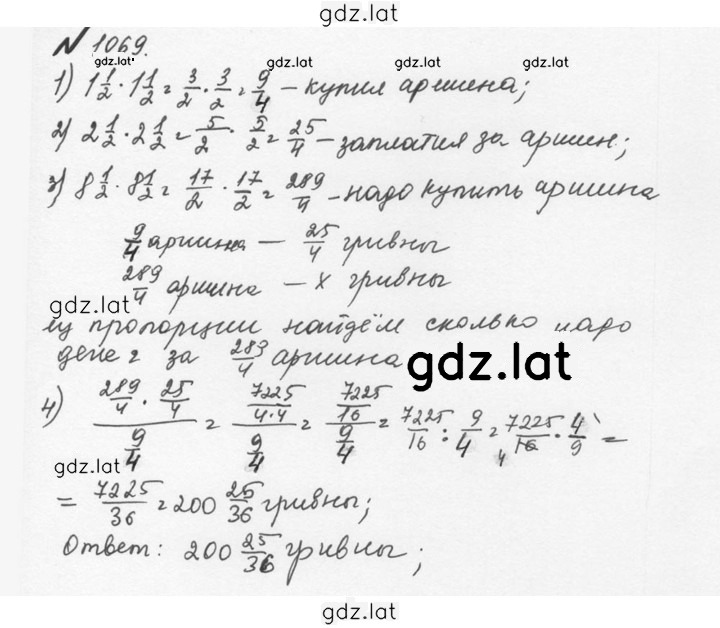 gdz.lat
N 1069.
gdz.lat
1) 1 1/2 · 1 1/2 = 3/2 · 3/2 = 9/4 – купил аршина;
2) 2 1/2 · 2 1/2 = 5/2 · 5/2 = 25/4 – заплатил за аршин;
3) 8 1/2 · 8 1/2 = 17/2 · 17/2 = 289/4 – надо купить аршина
9/4 аршина – 25/4 гривны
289/4 аршина – x гривны
gdz.lat
Из пропорции найдём сколько надо
денег за 289/4 аршина
gdz.lat
4) (289/4 · 25/4)/(9/4) = (7225/(4·4))/(9/4) = (7225/16)/(9/4) = 7225/16 : 9/4 = 7225/16 · 4/9 =
4
gdz.lat
= 7225/36 = 200 25/36 гривны;
gdz.lat
Ответ: 200 25/36 гривны;
gdz.lat